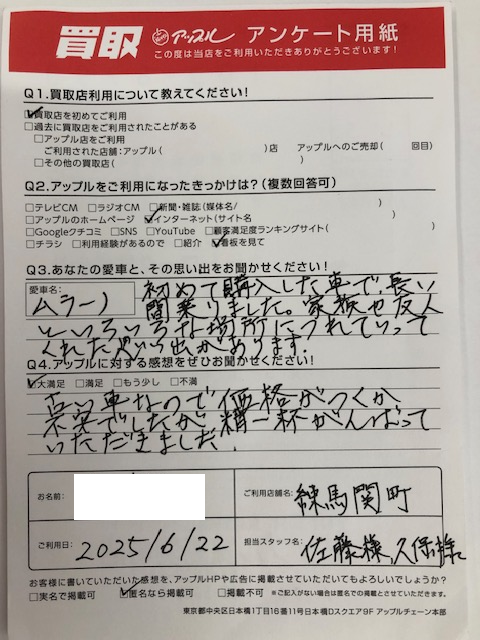 買取 アップル アンケート用紙
この度は当店をご利用いただきありがとうございます!
Q1.買取店利用について教えてください!
☑買取店を初めてご利用
□過去に買取店をご利用されたことがある
□アップル店をご利用
ご利用された店舗:アップル( )店 アップルへのご売却( 回目)
□その他の買取店( )
Q2.アップルをご利用になったきっかけは?(複数回答可)
□テレビCM □ラジオCM □新聞・雑誌(媒体名/ )
□アップルのホームページ ☑インターネット(サイト名 )
□Googleクチコミ □SNS □YouTube □顧客満足度ランキングサイト( )
□チラシ □利用経験があるので □紹介 ☑看板を見て
Q3.あなたの愛車と、その思い出をお聞かせください!
愛車名:
ムラーノ
初めて購入した車で、長い
間乗りました。家族や友人
といろいろな場所につれていって
くれた思い出があります。
Q4.アップルに対する感想をぜひお聞かせください!
☑大満足 □満足 □もう少し □不満
古い車なので価格がつくか
不安でしたが、精一杯がんばって
いただきました。
お名前:
ご利用店舗名: 練馬関町
ご利用日: 2025/6/22
担当スタッフ名: 佐藤様、久保様
お客様に書いていただいた感想を、アップルHPや広告に掲載させていただいてもよろしいでしょうか?
□実名で掲載可 ☑匿名なら掲載可 □掲載不可 ※ご記入がない場合は匿名での掲載とさせていただきます。
東京都中央区日本橋1丁目16番11号日本橋Dスクエア9F アップルチェーン本部